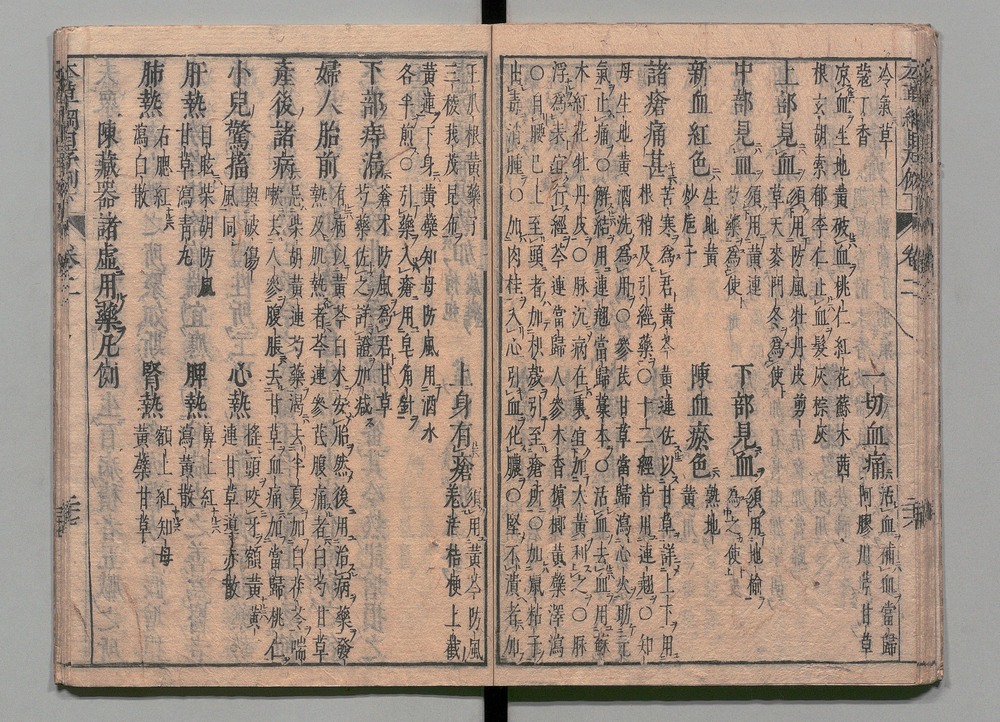 冷氣草 一切血痛 活血補血當歸
蔻丁香 阿膠川芎甘草
涼血生地黃破血桃仁紅花蘇木茜
根玄胡索郁李仁止血髮灰棕灰
上部見血 須用防風牡丹皮剪
草天麥門冬為使
中部見血 須用黃連
芍藥為使 下部見血 須用地榆
為之使
新血紅色 生地黃
炒梔子 陳血瘀色 熟地
黃
諸瘡痛甚 苦寒為君黃芩黃連佐以甘草詳上下用
根稍及引經藥○十二經皆用連翹○知
母生地黃酒洗為用○參芪甘草當歸瀉心火助元
氣止痛○解結用連翹當歸藁本○活血去血用蘇
木紅花牡丹皮○脈沉病在裏宜加大黃利之○脈
浮為表宜行經芩連當歸人參木香檳榔黃檗澤瀉
○自腰已上至頭者加枳殼引至瘡所○加鼠粘子
出毒消腫○加肉桂入心引血化膿○堅不潰者加
王瓜根黃藥子 上身有瘡 須用黃芩防風
三稜莪茂昆布 羌活桔梗上截
黃連下身黃檗知母防風用酒水
各半煎○引藥入瘡用皂角針
下部痔漏 蒼朮防風為君甘草
芍藥佐之詳證加減
婦人胎前 有病以黃芩白朮安胎然後用治病藥發
熱及肌熱者芩連參芪腹痛者白芍甘草
產後諸病 忌柴胡黃連芍藥渴去半夏加白茯苓喘
嗽去人參腹脹去甘草血痛加當歸桃仁
小兒驚搐 與破傷
風同 心熱 搖頭咬牙額黃黃
連甘草導赤散
肝熱 目眩柴胡防風
甘草瀉青丸 脾熱 鼻上紅
瀉黃散
肺熱 右腮紅
瀉白散 腎熱 額上紅知母
黃檗甘草
陳藏器諸虛用藥凡例
卷二